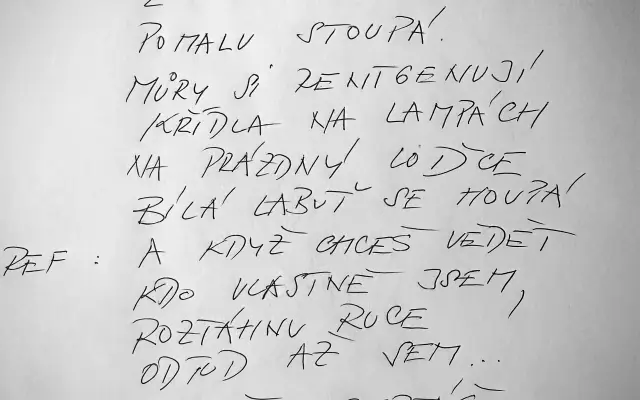 POMALU STOUPÁ.
MŮRY SI RENTGENUJÍ
KŘÍDLA NA LAMPÁCH
NA PRÁZDNÝ LOĎCE
BÍLÁ LABUŤ SE HOUPÁ
REF : A KDYŽ CHCEŠ VĚDĚT
KDO VLASTNĚ JSEM,
ROZTÁHNU RUCE
ODTUD AŽ SEM...